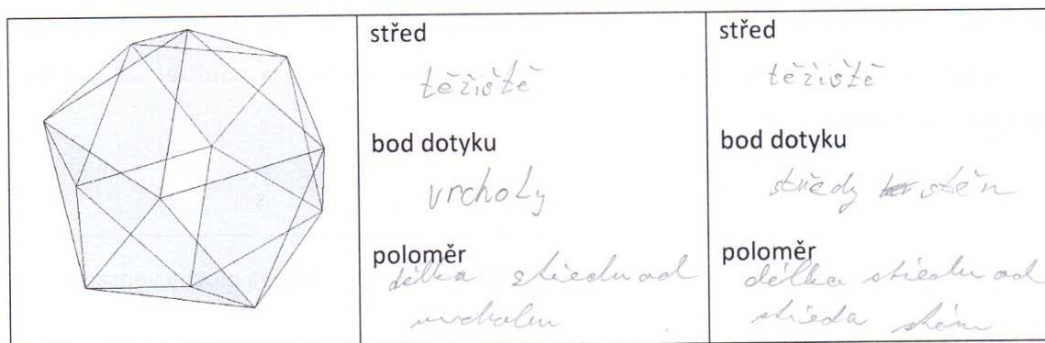 střed
těžiště
bod dotyku
vrcholy
poloměr
délka středu od
vrcholu
střed
těžiště
bod dotyku
středy stěn
poloměr
délka středu od
středa stěn